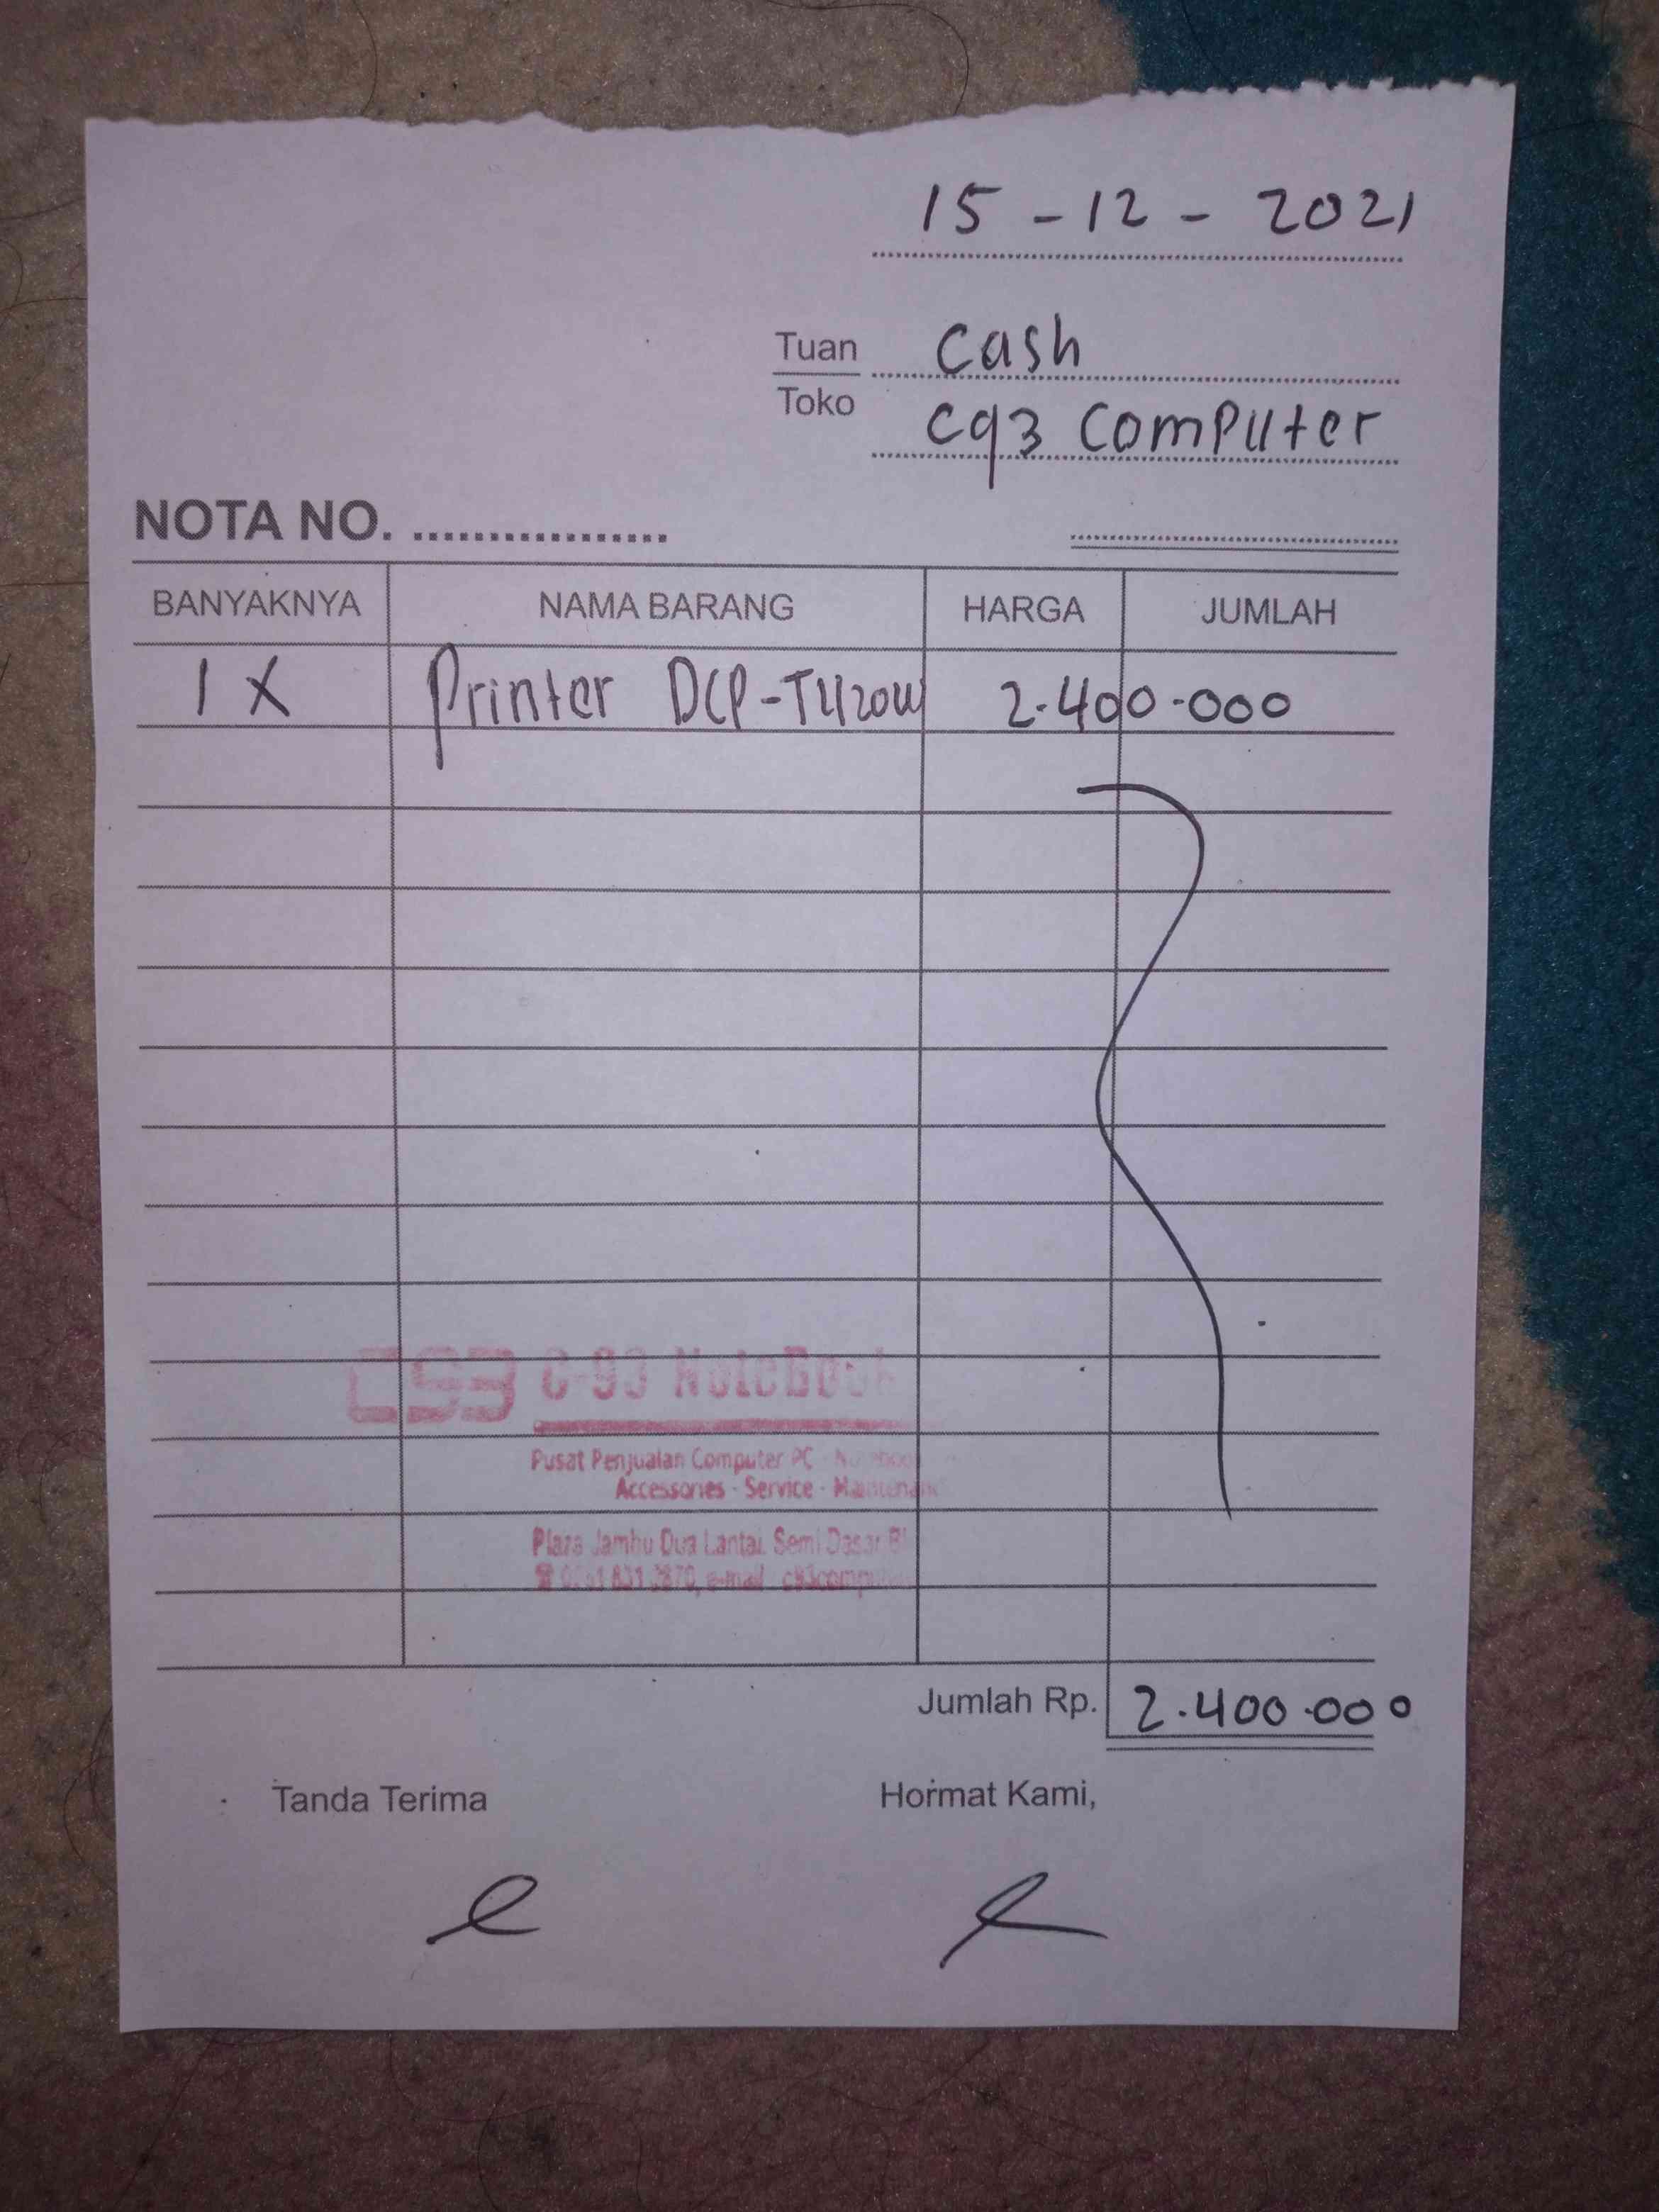 15 - 12 - 2021
Tuan Cash
Toko C93 Computer
NOTA NO. .................
BANYAKNYA NAMA BARANG HARGA JUMLAH
1 X Printer DCP-T420W 2.400.000
C93 C-93 NoteBook
Pusat Penjualan Computer PC -
Accessories - Service -
Plaza Jambu Dua Lantai Semi Dasar
e-mail
Jumlah Rp. 2.400.000
Tanda Terima Hormat Kami,